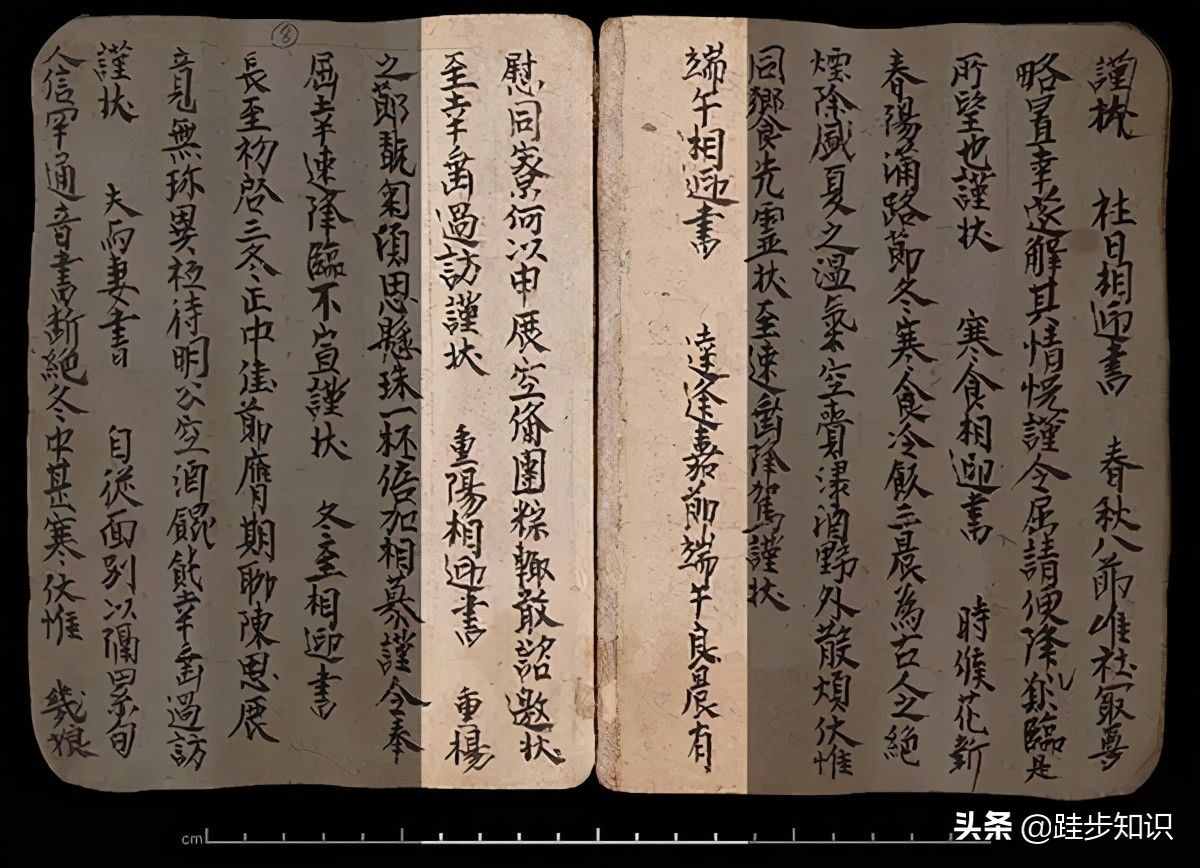 謹状　社日相迎書　春秋八節唯社寂尊
略置幸遂解其情慌謹令屈請便降　臨是
所望也謹状　寒食相迎書　時候花新
春陽滿路節冬寒食冷飯三晨為古人之絕
煙除盛夏之温氣空賷渌酒野外散煩伏惟
同饗先靈状至速垂降駕謹状
端午相迎書　逵逢嘉節端午良晨有
慰同寮何以申展空俻團粽輙敢諮邀状
至幸垂過訪謹状　重陽相迎書　重楊
之節翫菊傾思懸珠一杯倍加相慕謹令奉
屈幸速降臨不宣謹状　冬至相迎書
長至初啓三冬正中佳節膺期聊陳思展
旨無珎異祗待明公空酒餛飩幸垂過訪
謹状　夫与妻書　自従面別以隔累旬
人信罕通音書断絕冬中甚寒伏惟　幾娘
8
cm
头条 @跬步知识